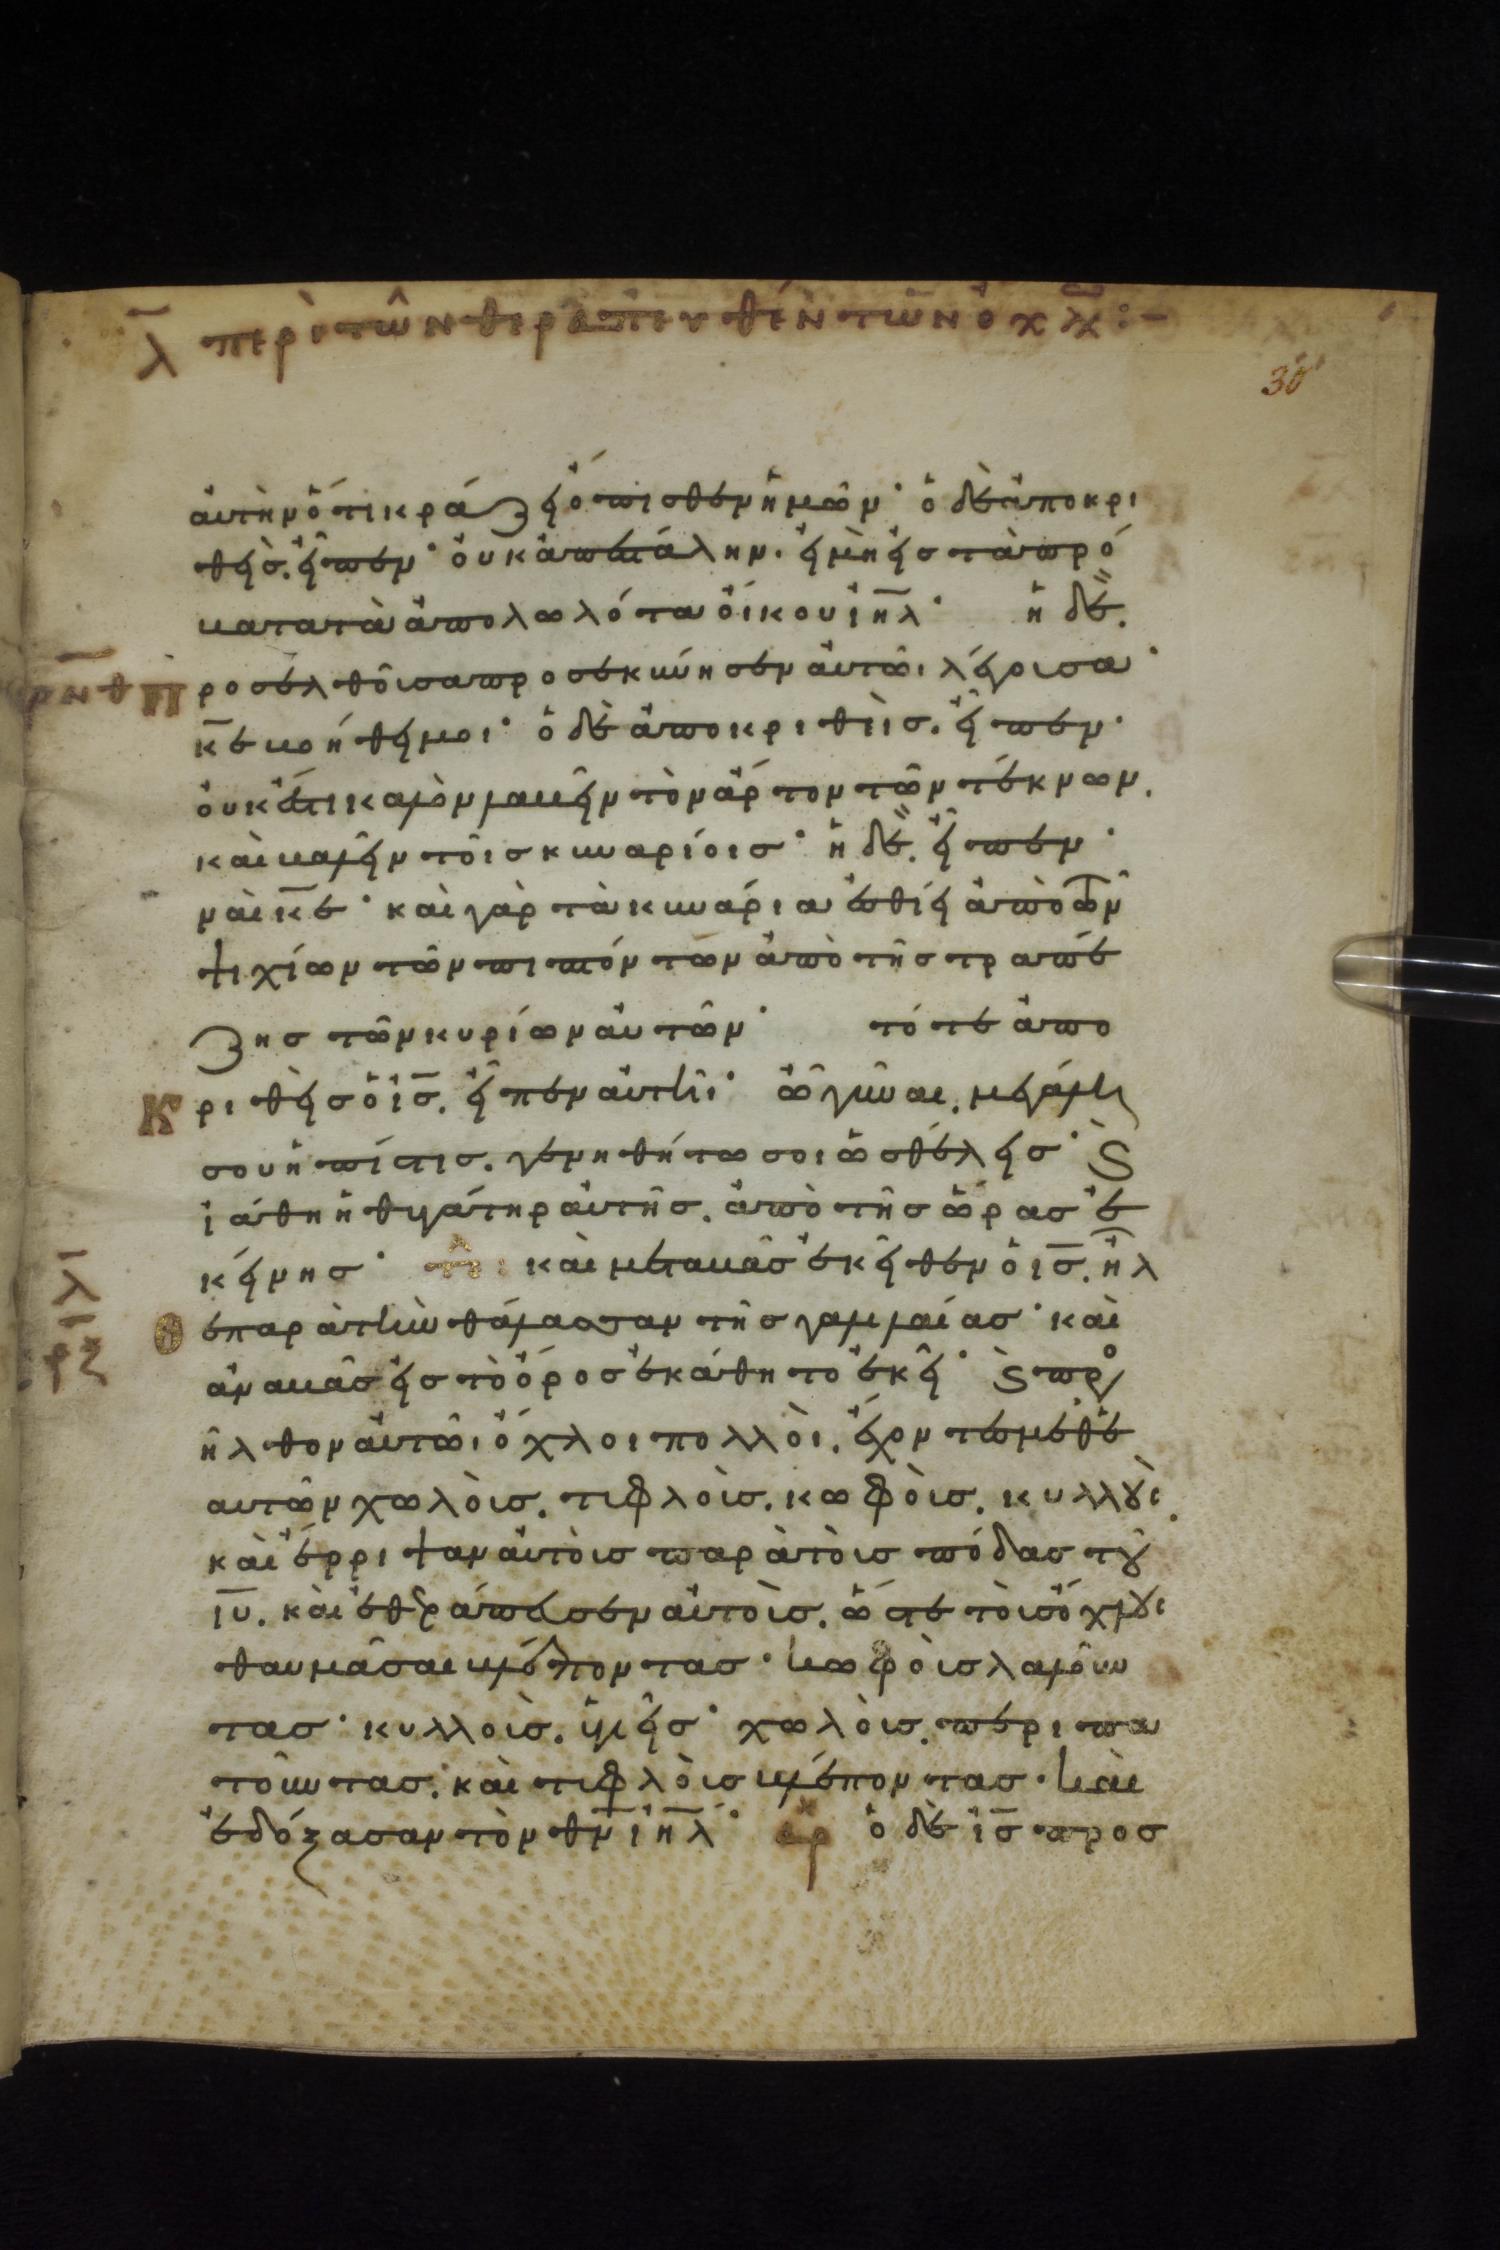 λ̅ περὶ τῶν θεραπευθέντων ὄχλ̅:–
30
ἀυτὴν ὅτι κράζει ὄπισθεν ἡμῶν· ὁ δὲ ἀποκρι
θεὶς. εἶπεν· ὀυκ ἀπεστάλην. εἰ μὴ εἰς τὰ πρό
βατα τὰ ἀπολωλότα ὄικου ι̅η̅λ̅· ἡ δὲ.
ρ̅ν̅θ̅ Προσελθοῦσα προσεκύνησεν ἀυτῶι λέγουσα·
κ̅ε̅ βοήθει μοι· ὁ δὲ ἀποκριθεὶς. εἶπεν·
ὀυκ ἔστι καλὸν λαβεῖν τὸν ἄρτον τῶν τέκνων.
καὶ βαλεῖν τοῖς κυναρίοις· ἡ δὲ. εἶπεν·
ναὶ κ̅ε̅· καὶ γὰρ τὰ κυνάρια ἐσθίει ἀπὸ τῶν
ψιχίων τῶν πιπτόντων ἀπὸ τῆς τραπέ
ζης τῶν κυρίων ἀυτῶν· τότε ἀπο
Κριθεὶς ὁ ι̅ς̅. εἶπεν ἀυτῆι· ὦ γύναι. μεγάλη
σου ἡ πίστις. γενηθήτω σοι ὡς θέλεις· ϗ
ἰάθη ἡ θυγάτηρ ἀυτῆς. ἀπὸ τῆς ὥρας ἐ
κείνης· τε: καὶ μεταβὰς ἐκεῖθεν ὁ ι̅ς̅. ἦλ
λ̅ι̅
ρ̅ξ̅
Θεν παρὰ τὴν θάλασσαν τῆς γαλιλαίας· καὶ
ἀναβὰς εἰς τὸ ὄρος ἐκάθητο ἐκεῖ· ϗ προ
ῆλθον ἀυτῶι ὄχλοι πολλοὶ. ἔχοντες μεθ ἑ
αυτῶν χωλοὺς. τυφλοὺς. κωφοὺς. κυλλοὺς.
καὶ ἔρριψαν ἀυτοὺς παρὰ τοὺς πόδας τοῦ
ι̅υ̅. καὶ ἐθεράπευσεν ἀυτοὺς. ὥστε τοὺς ὄχλους
θαυμᾶσαι βλέποντας· κωφοὺς λαλοῦν
τας· κυλλοὺς. ὑγιεῖς· χωλοὺς. περιπα
τοῦντας. καὶ τυφλοὺς βλέποντας· καὶ
ἐδόξασαν τὸν θ̅ν̅ ι̅η̅λ̅· αρχ ὁ δὲ ι̅ς̅ προς